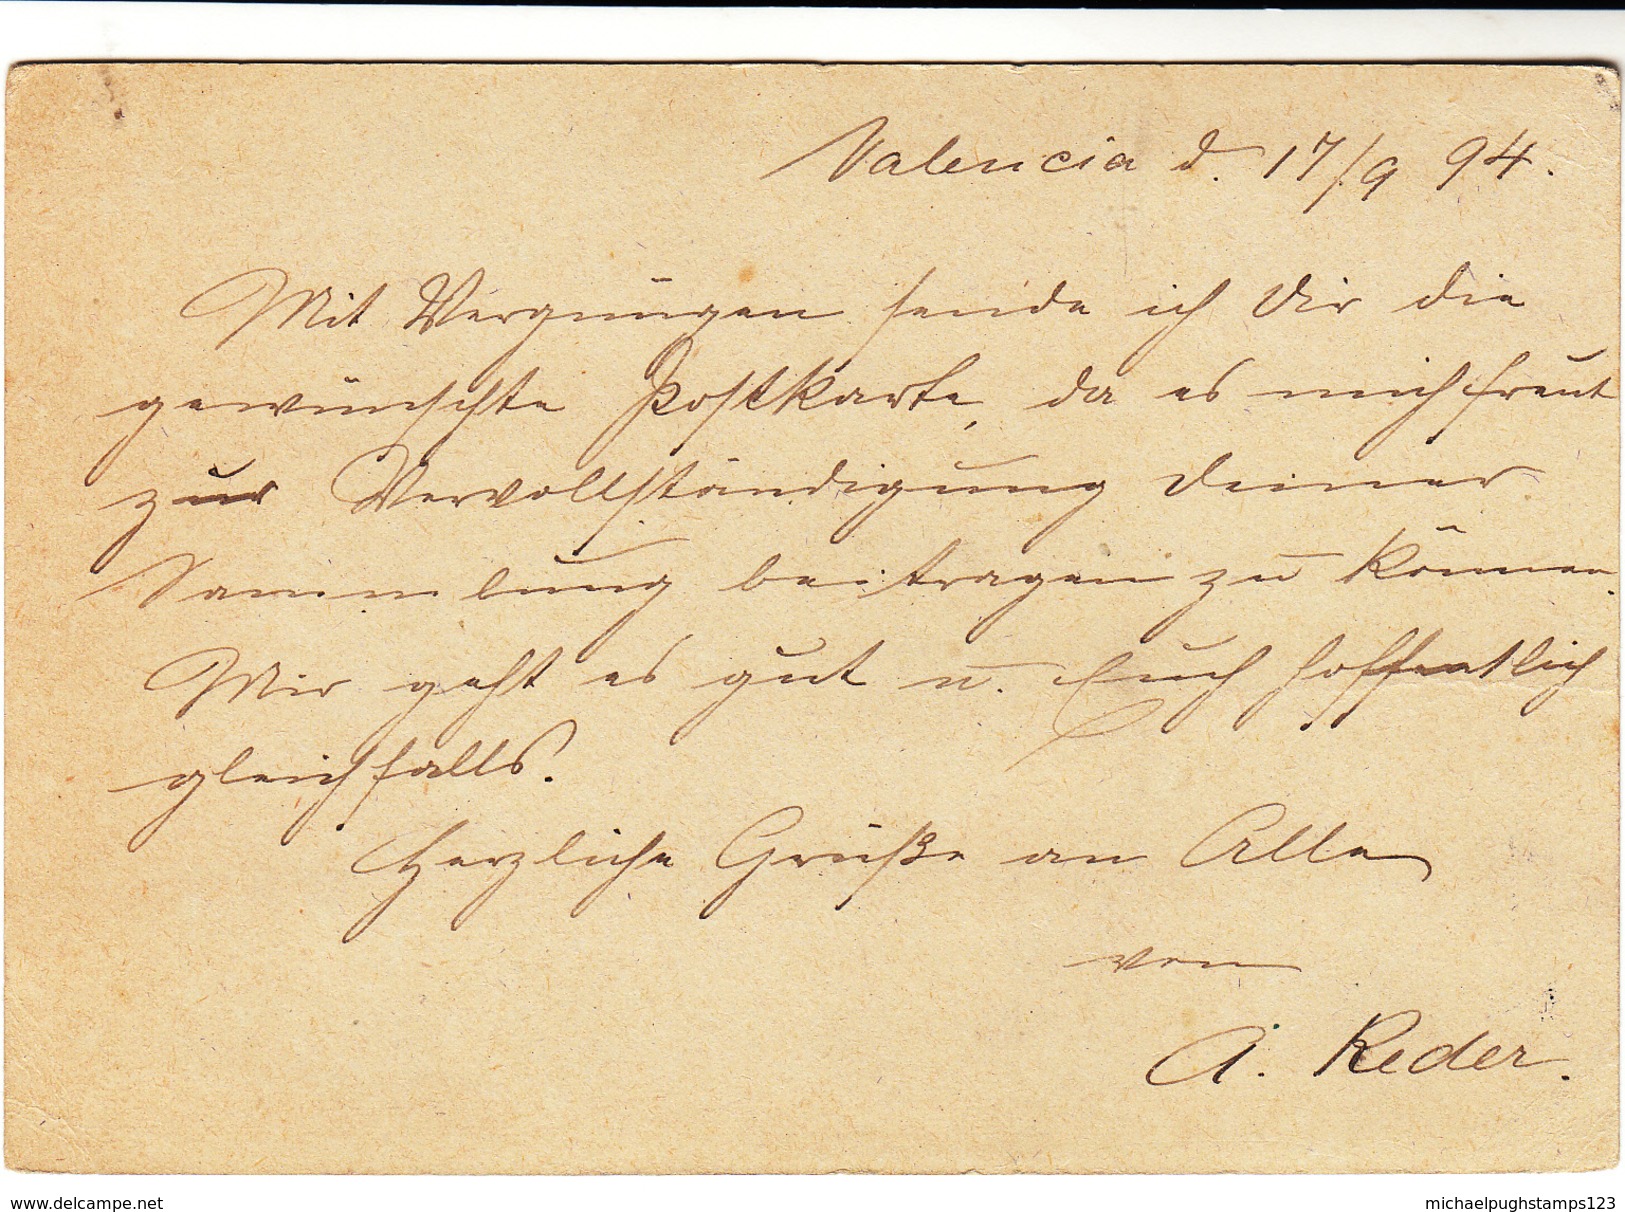 Valencia d. 17/9 94.
Mit Vergnügen sende ich Dir die
gewünschte Postkarte, da es mich freut
zur Vervollständigung Deiner
Sammlung beitragen zu können.
Mir geht es gut u. Euch hoffentlich
gleichfalls.
Herzliche Grüße an Alle
von
A. Reder.
www.delcampe.net
michaelpughstamps123